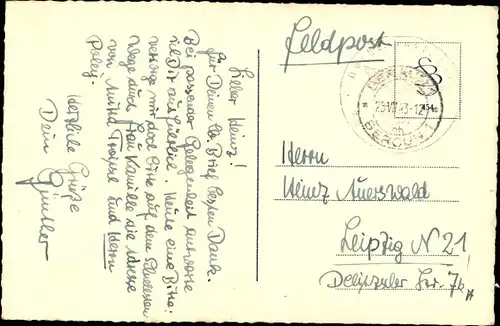 Lieber Heinz!
Für Deinen lb. Brief besten Dank.
Bei passender Gelegenheit antworte
ich Dir ausführlich. Heute eine Bitte:
besorge mir doch bitte auf dem schnellsten
Wege durch Frau Kamilla die Adresse
von Anita und Herrn
Poley.
Herzliche Grüße
Dein
Günther
Feldpost
Herrn
Heinz Auerswald
Leipzig N 21
Delitzscher Str. 7